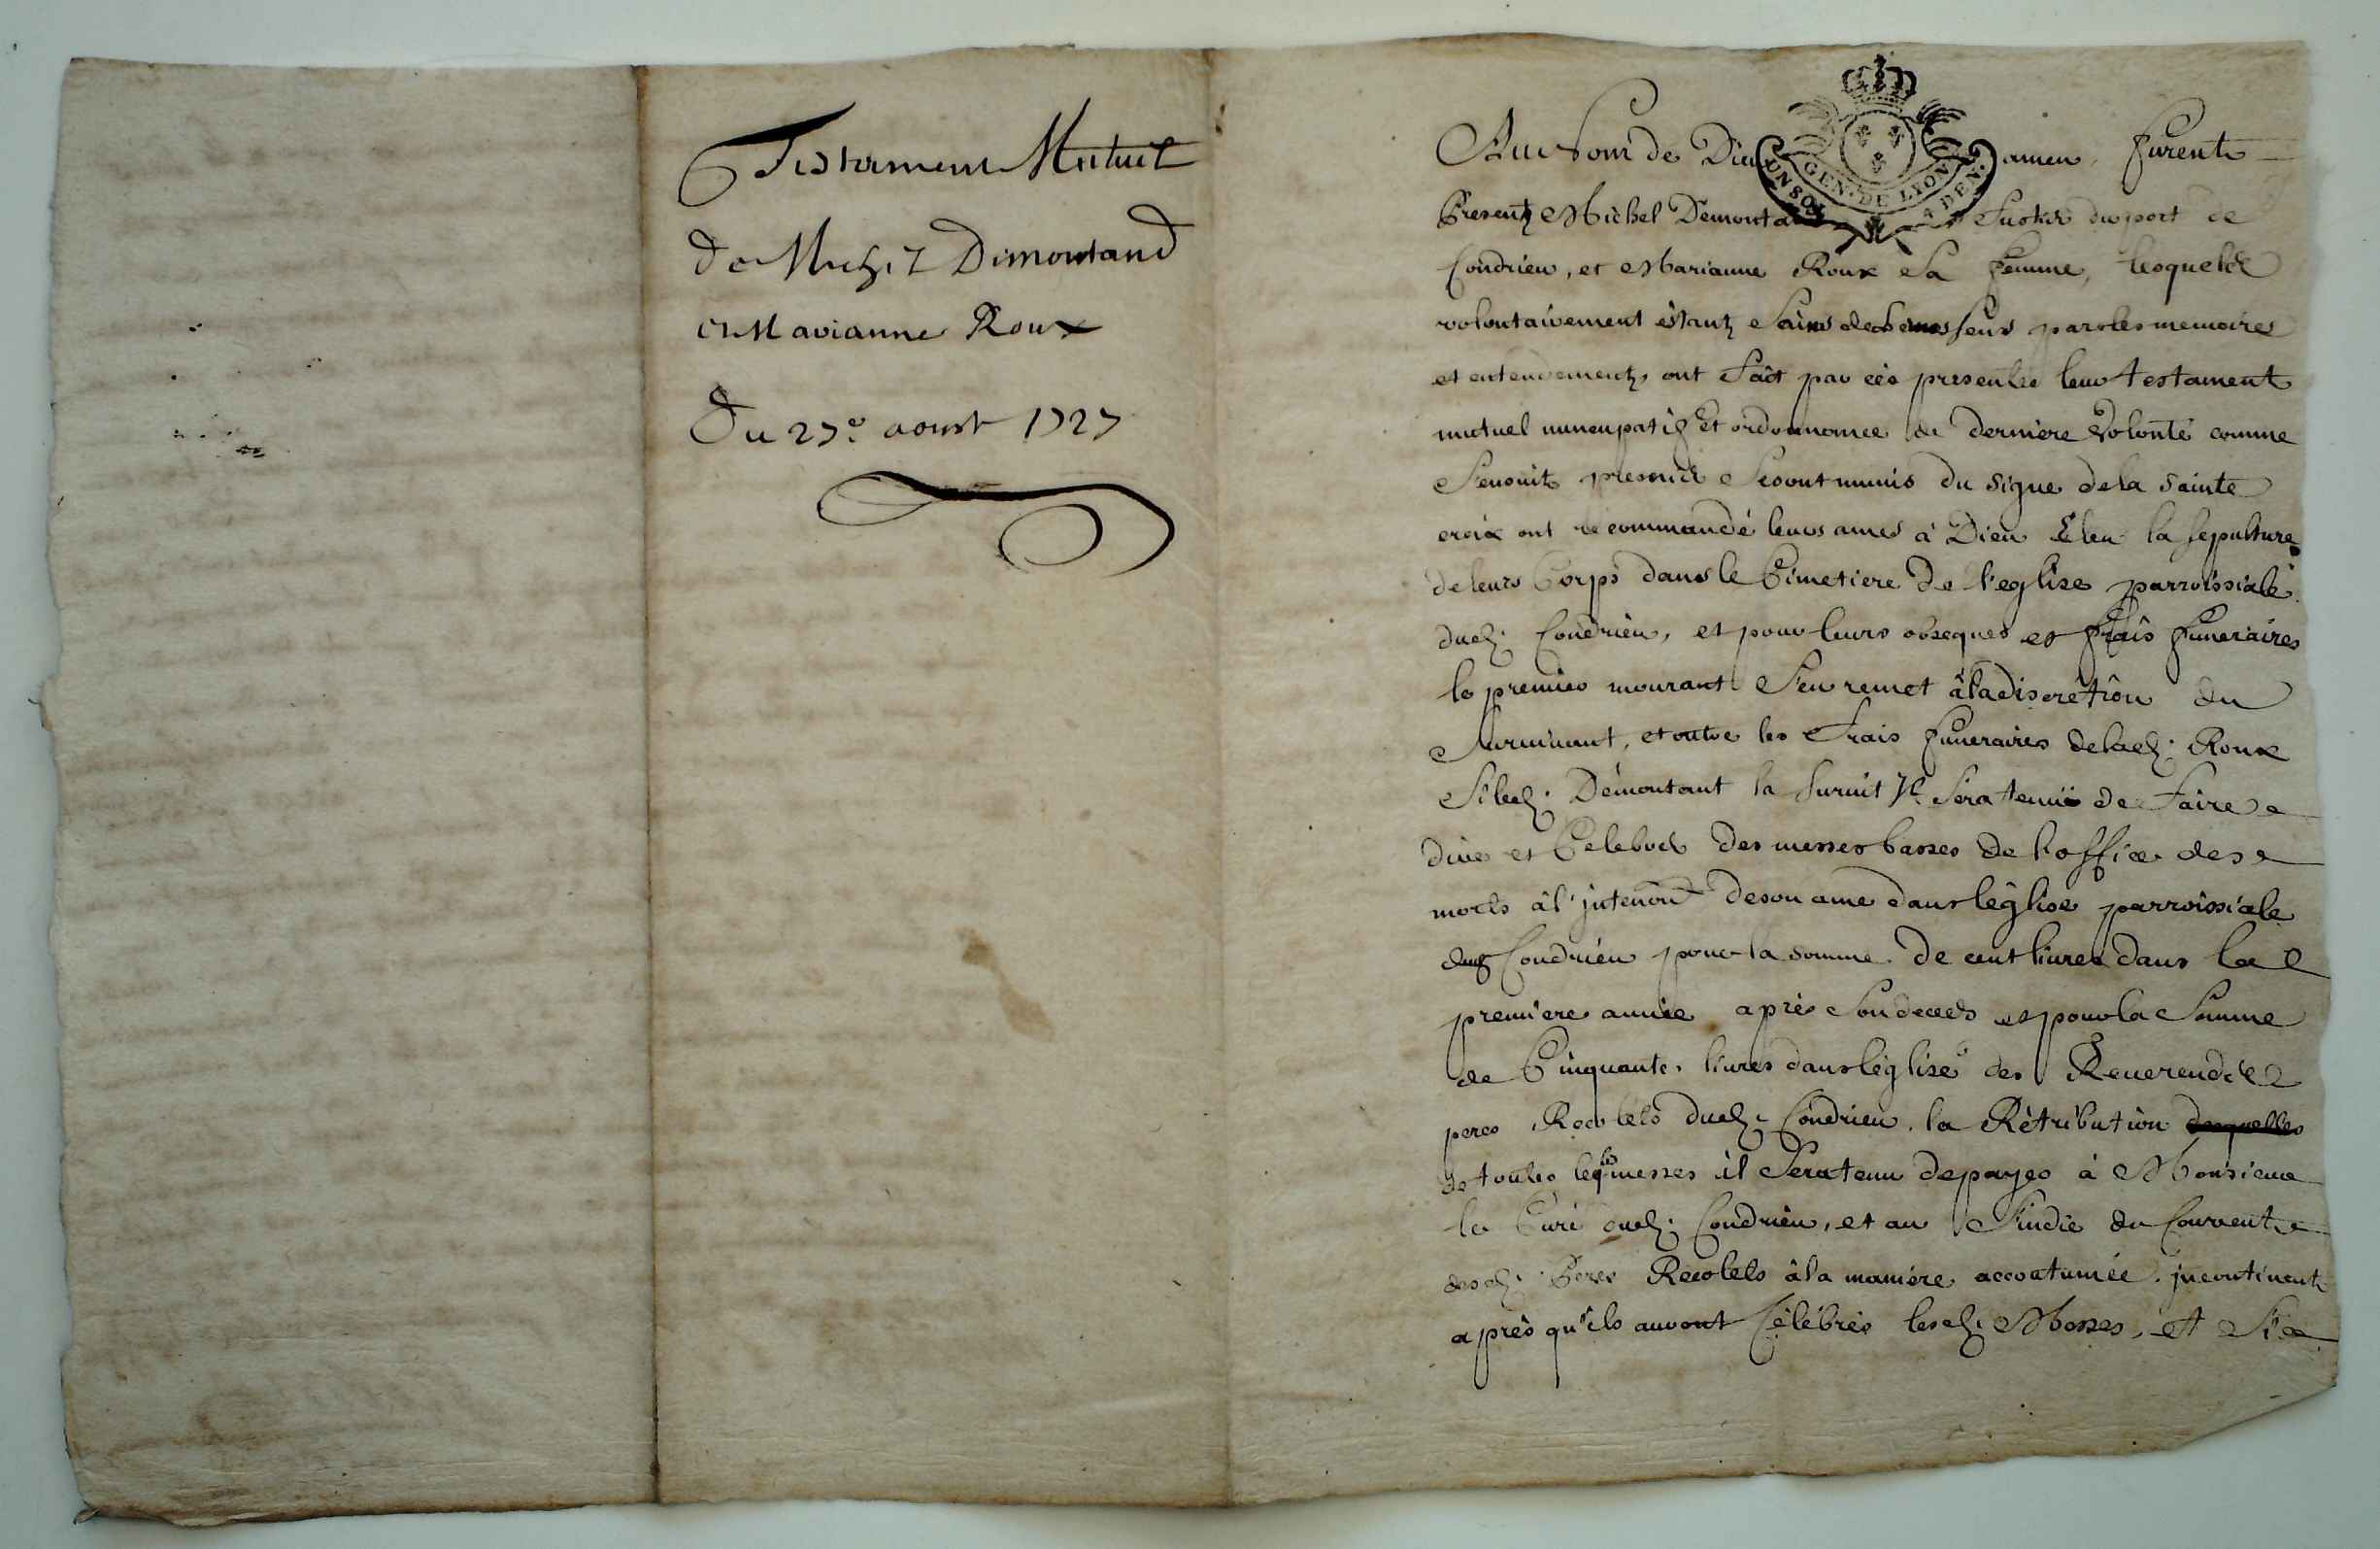 Testament Mutuel
de Michel Demontand
et Marianne Roux
Du 27e aoust 1727
GEN. DE LYON
UN SOL 4 DEN.
Au Nom de Dieu amen, furent
Presentz Michel Demonta du port de
Condrieu, et Marianne Roux Sa femme, lesquels
volontairement estantz Sains de Sens paroles memoires
et entendementz, ont Fait par ces presentes leur testament
mutuel nuncupatif Et ordonnance de derniere Volonté comme
S'ensuit, premier Se sont munis du signe de la sainte
croix ont recommandé leurs ames à Dieu Eleu la sepulture
de leurs Corps dans le Cimetiere de l'eglise parroissiale
dud. Condrieu, et pour leurs obseques et frais funeraires
le premier mourant S'en remet à la discretion du
Survivant, et outre les Frais funeraires de lad. Roux
Si led. Demontant la survit Il Sera tenu de Faire
dire et Celebrer des messes basses de l'office des
morts à l'jntention de son ame dans l'église parroissiale
dud Condrieu pour la somme de cent livres dans la
premiere année après Son deceds et pour la Somme
de Cinquante livres dans l'église des Reverends
peres Recolets dud. Condrieu. la Rétribution desquelles
de toutes lesqles messes il Sera tenu de payer à Monsieur
le Curé dud. Condrieu, et au Sindic du Couvent
desd. Peres Recolets à la maniere accoutumée, jncontinent
après qu'ils auront Célébrés lesd. Messes, et Si